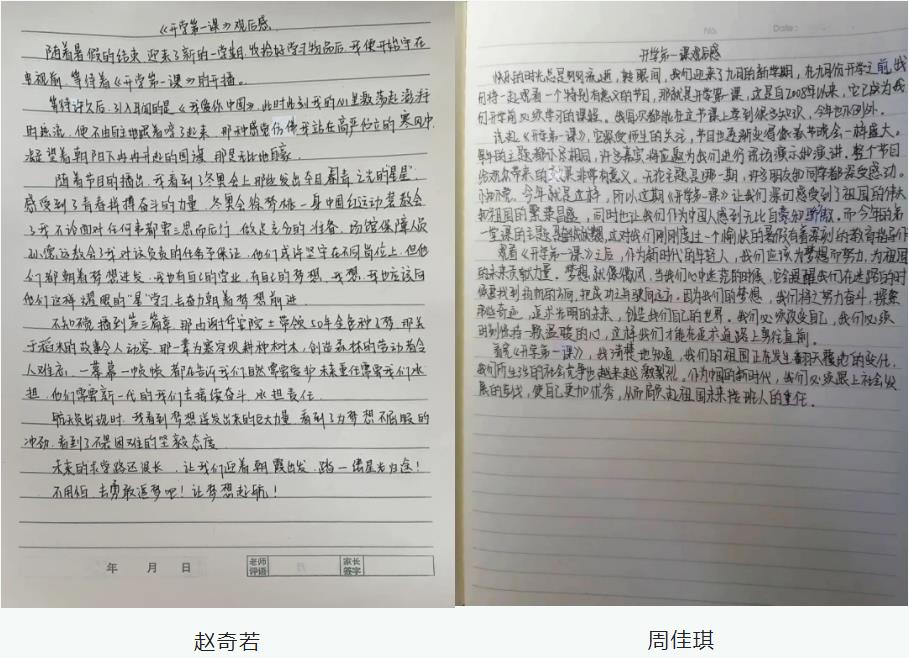 《开学第一课》观后感
随着暑假的结束,迎来了新的一学期,收拾好学习物品后,我便开始守在
电视前,等待着《开学第一课》的开播。
等待许久后,引入耳间的是《我爱你中国》,此时此刻我的心里激荡起澎湃
的热流,便不由自主地跟着唱了起来,那种感觉仿佛我站在高严伫立的寒风中,
凝望着朝阳下冉冉升起的国旗,那是无比地自豪。
随着节目的播出,我看到了冬奥会上那些发出夺目耀眼之光的"星星"
感受到了青春拼搏奋斗的力量,冬奥会徐梦桃一身中国红运动装教会
了我不论面对任何事都要三思而后行,做足充分的准备,场馆保障人员
孙儒远教会了我对这负责的任务予保证,他们或许坚守在不同岗位上,但他
们都朝着梦想进发,我也有自己的学业,有自己的梦想,我想,我也应该向
他们这样耀眼的"星"学习,去奋力朝着梦想前进。
不知不觉,播到第三篇章,那由谢华安院士带领50年全色种子梦,那关
于稻米的故事令人动容,那一辈为塞罕坝耕种树木,创造森林的劳动者令
人难忘,一幕幕一帧帧,都在告诉我们自然需要爱护,未来重任需要我们承
担,他们需要新一代的我们去接续奋斗,承担责任。
航天员出现时,我看到梦想迸发出来的巨大力量,看到了为梦想不屈服的
冲劲,看到了不畏困难的坚毅态度
未来的求学路还很长,让我们迎着朝霞出发,踏一缕星光归途!
不用怕,去勇敢追梦吧!让梦想起航!
年 月 日
老师评语
家长签字
赵奇若
No.
Date:
开学第一课观后感
快乐的时光总是飞速流逝,转眼间,我们迎来了九月的新学期,在九月份开学之前,我
们将一起观看一个特别有意义的节目,那就是开学第一课,这是自2008年以来,它已成为我
们开学前必须学习的课程。我每次都能在这节课上学到很多知识,今年也不例外。
说起《开学第一课》,它深受师生的关注,节目也逐渐变得像春节晚会一样盛大。
每年的主题都不尽相同,许多嘉宾将应邀为我们进行现场演示和演讲,整个节目
给观众带来的文化是非常有意义。无论主题是哪一期,许多朋友和同学都深受感动。
不知不觉,今年就是这样,所以这期《开学第一课》让我们深切感受到了祖国的伟大
和祖国的繁荣昌盛,同时也让我们作为中国人感到无比自豪和骄傲,而今年的第
一堂课的主题是奋斗成就梦想,这对我们刚刚度过一个愉快的暑假有着深刻的教育指导作
观看《开学第一课》之后,作为新时代的年轻人,我们应该为梦想而努力,为祖国
的未来贡献力量,梦想就像微风,当我们心中迷茫的时候,它会提醒我们在迷路的时
候要找到新的方向,把成功之与驶向远方。因为我们的梦想,我们将会努力奋斗,探索
那些奇迹,追求光明的未来,创造我们自己的世界,我们必须改变自己,我们必须
时刻保持一颗温暖的心,这样我们才能在追求道路上勇往直前。
看完《开学第一课》,我清楚也知道,我们的祖国正在发生翻天覆地的变化,
我们所生活的社会竞争也越来越激烈。作为中国的新时代,我们必须跟上社会发
展的步伐,使自己更加优秀,从而肩负起祖国未来接班人的重任。
周佳琪